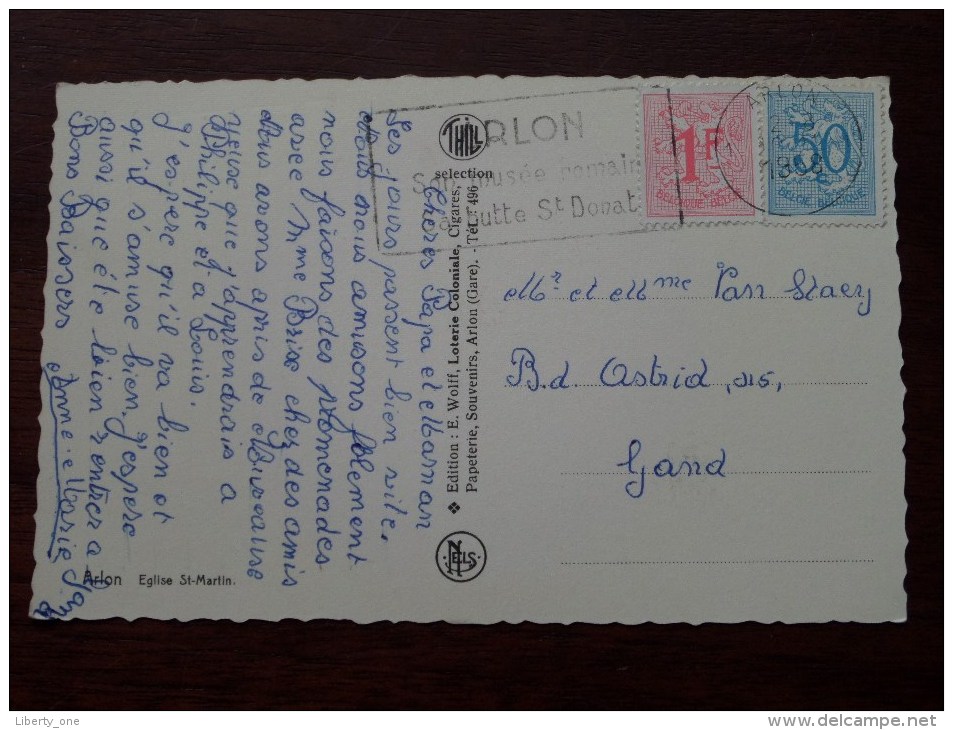 ARLON
Son musée romain
La Butte St Donat
1F
BELGIQUE-BELGIE
50
BELGIE-BELGIQUE
ARLON
THILL
selection
❖ Edition : E. Wolff, Loterie Coloniale, Cigares,
Papeterie, Souvenirs, Arlon (Gare). - Tél. : 496
NELS
Chères Papa et Maman
Les jours passent bien vite.
nous amusons follement
nous faisons des promenades
avec Mme Brix chez des amis
Nous avons apris de
que j'apprendrais a
Philippe et a Louis.
J'espère qu'il va bien et
qu'il s'amuse bien. J'espère
aussi que été bien rentrer a
Bons Baissers Anne-Marie
Arlon Eglise St-Martin.
Mr et Mme Van Staey
B.d. Astrid,
Gand
Liberty_one
delcampe.net